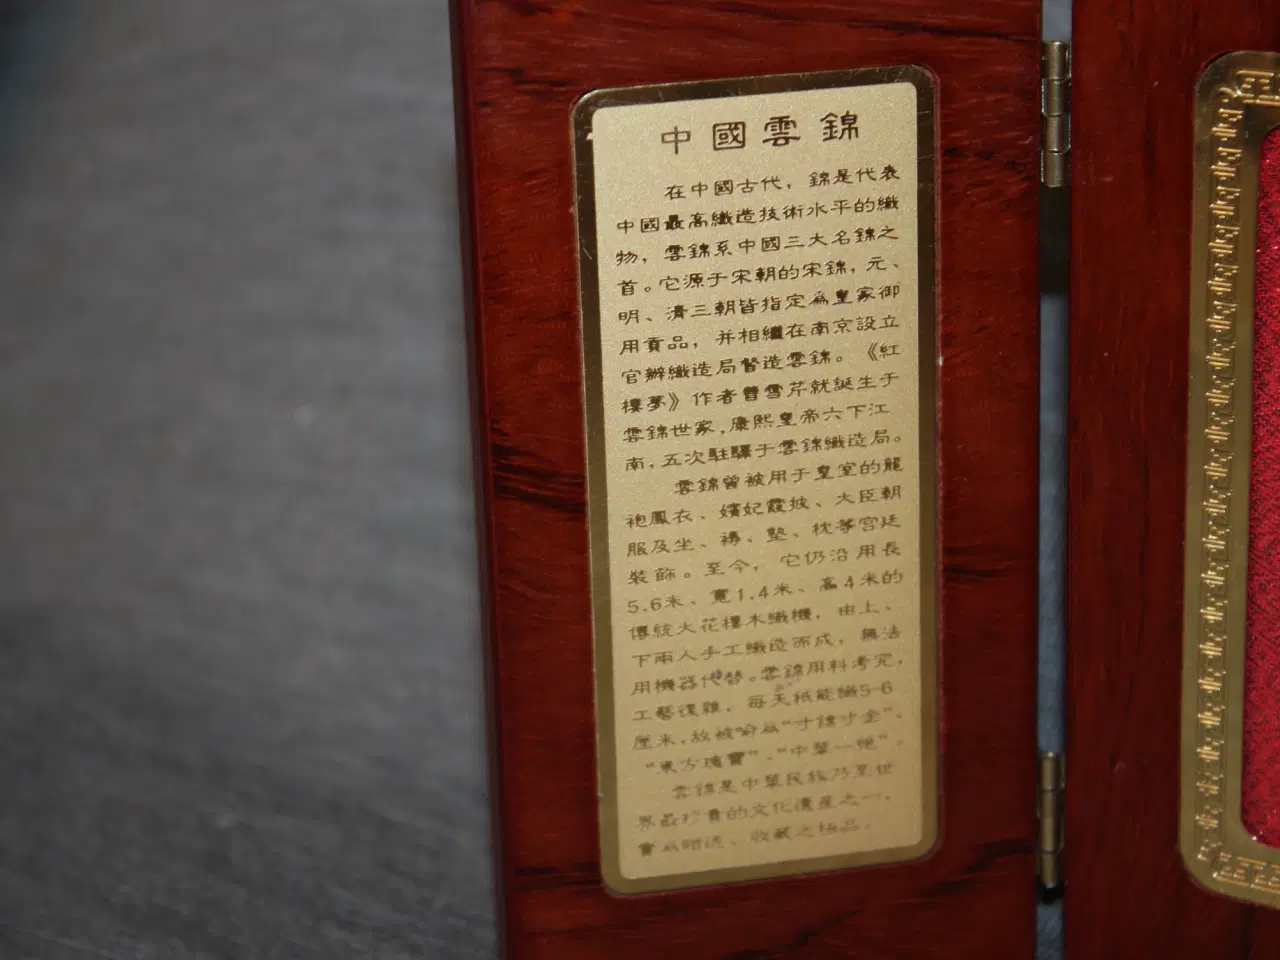 中國雲錦
在中國古代，錦是代表
中國最高織造技術水平的織
物，雲錦系中國三大名錦之
首。它源于宋朝的宋錦，元、
明、清三朝皆指定爲皇家御
用貢品，并相繼在南京設立
官辦織造局督造雲錦。《紅
樓夢》作者曹雪芹就誕生于
雲錦世家，康熙皇帝六下江
南，五次駐驛于雲錦織造局。
雲錦曾被用于皇室的龍
袍鳳衣、嬪妃霞披、大臣朝
服及坐、褥、墊、枕等宮廷
裝飾。至今，它仍沿用長
5.6米、寬1.4米、高4米的
傳統大花樓木織機，由上、
下兩人手工織造而成，無法
用機器代替。雲錦用料考究，
工藝復雜，每天祇能織5-6
厘米，故被喻爲“寸錦寸金”、
“東方瑰寶”、“中華一絕”。
雲錦是中華民族乃至世
界最珍貴的文化遺産之一，
實爲贈送、收藏之極品。